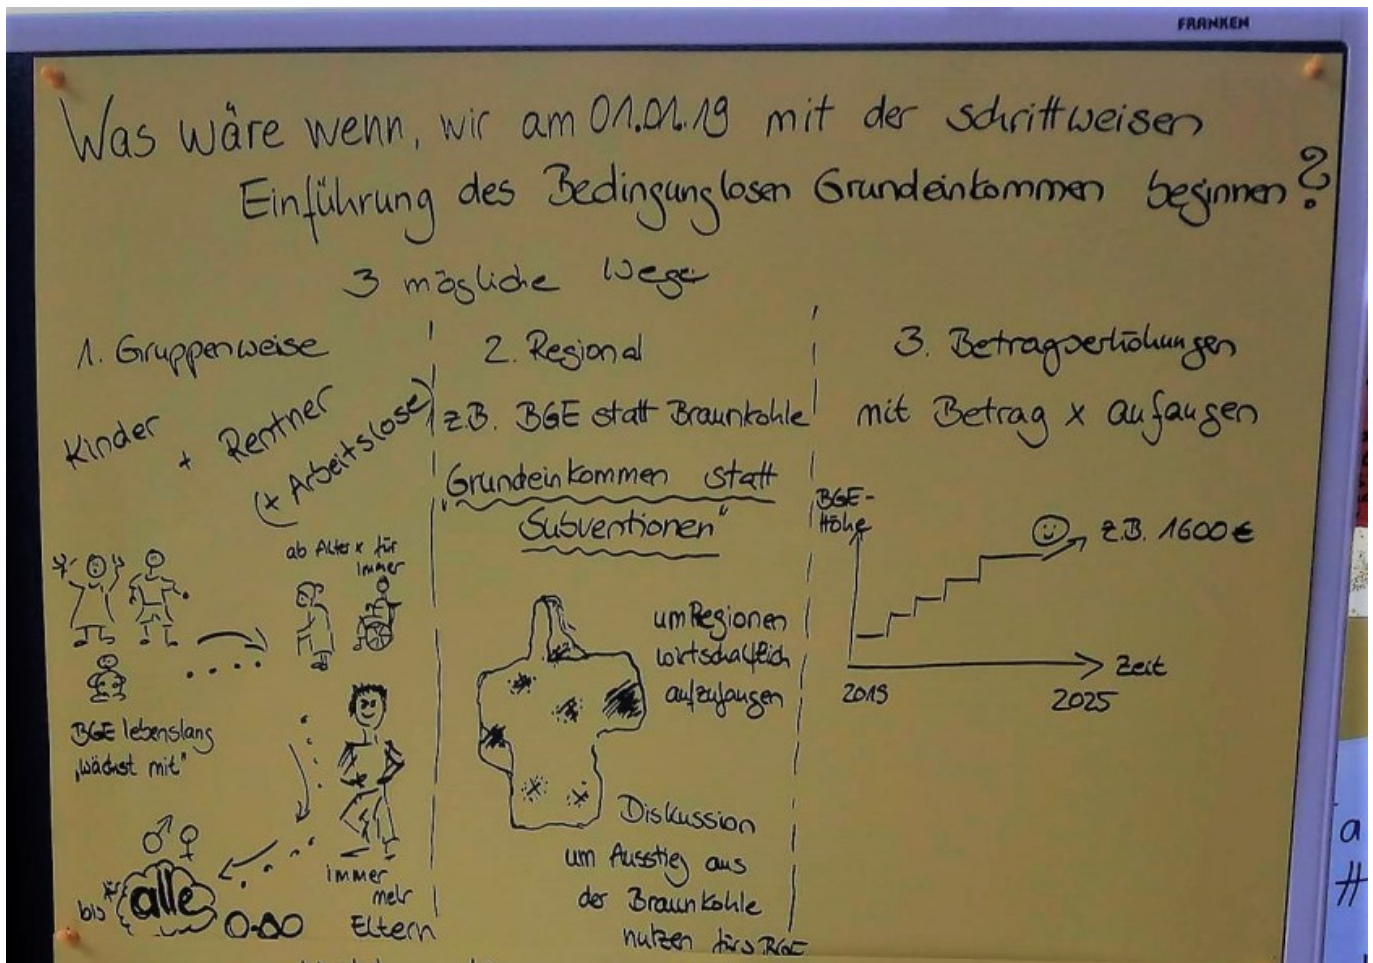 FRANKEN
Was wäre wenn, wir am 01.01.19 mit der schrittweisen
Einführung des Bedingungslosen Grundeinkommen beginnen?
3 mögliche Wege
1. Gruppenweise
Kinder + Rentner
(+ Arbeitslose)
ab Alter x für
immer
BGE lebenslang
„wächst mit"
immer
mehr
Eltern
bis alle
2. Regional
z.B. BGE statt Braunkohle
„Grundeinkommen statt
Subventionen"
um Regionen
wirtschaftlich
aufzufangen
Diskussion
um Ausstieg aus
der Braunkohle
nutzen fürs BGE
3. Betragserhöhungen
mit Betrag x anfangen
BGE-
Höhe
z.B. 1600 €
Zeit
2019
2025
a
#